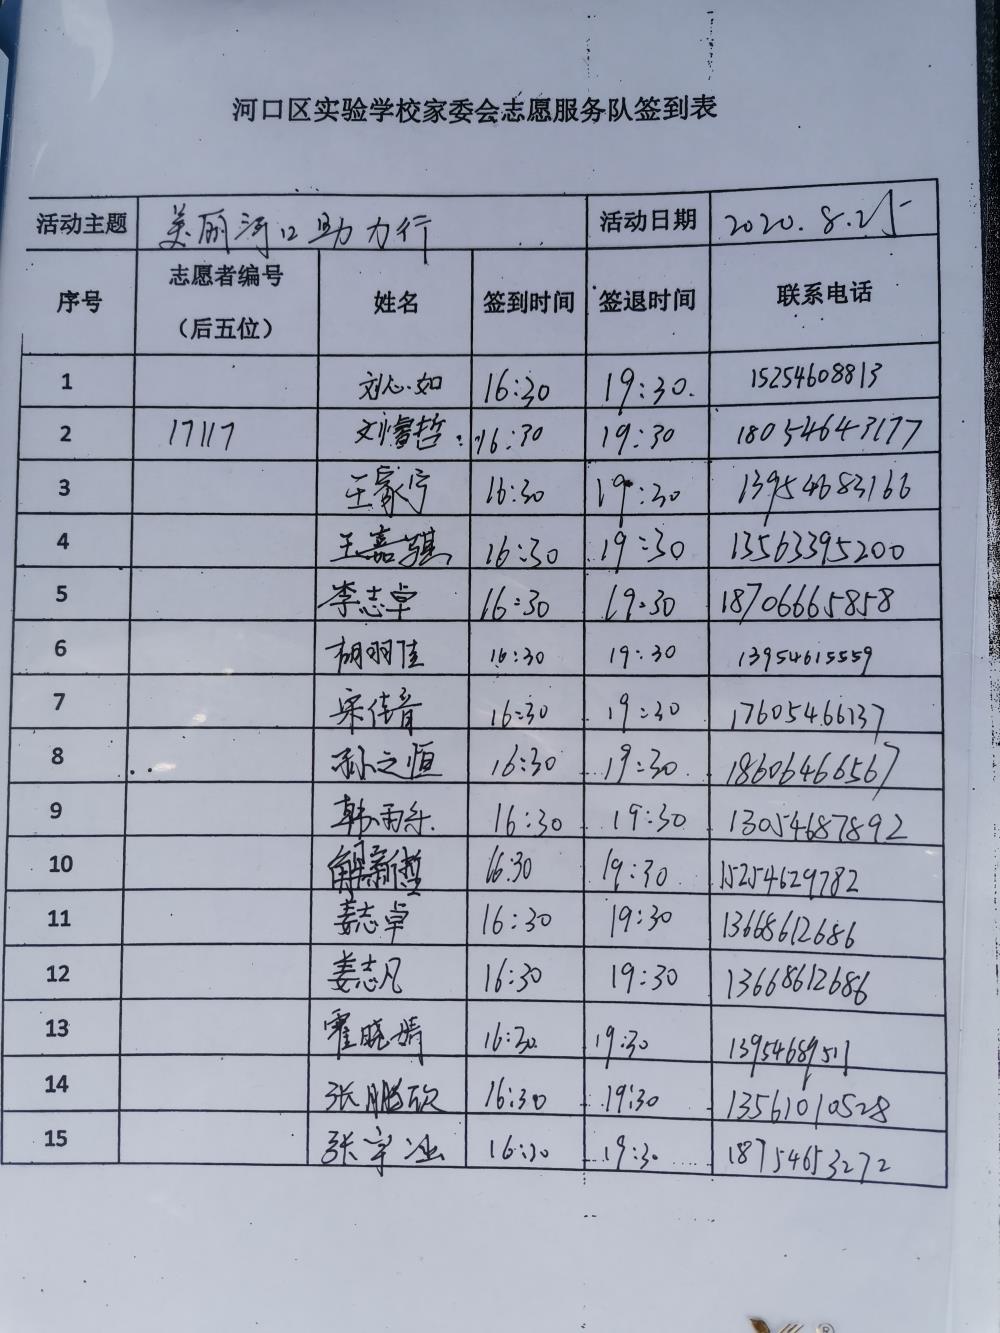 河口区实验学校家委会志愿服务队签到表
活动主题 美丽河口助力行 活动日期 2020.8.25
序号 志愿者编号（后五位） 姓名 签到时间 签退时间 联系电话
1 刘心如 16:30 19:30. 15254608813
2 17117 刘睿哲 16:30 19:30 18054643177
3 王家宁 16:30 19:30 13954683166
4 王嘉骐 16:30 19:30 13563395200
5 李志卓 16:30 19:30 18706665858
6 胡羽佳 16:30 19:30 13954615559
7 宋佳音 16:30 19:30 17605466137
8 孙之恒 16:30 19:30 18606466567
9 韩雨乐 16:30 19:30 13054687892
10 解新哲 16:30 19:30 15254629782
11 姜志卓 16:30 19:30 13668612686
12 姜志凡 16:30 19:30 13668612686
13 霍晓婧 16:30 19:30 13954689511
14 张鹏欣 16:30 19:30 13561010528
15 张宇 16:30 19:30 18754653272